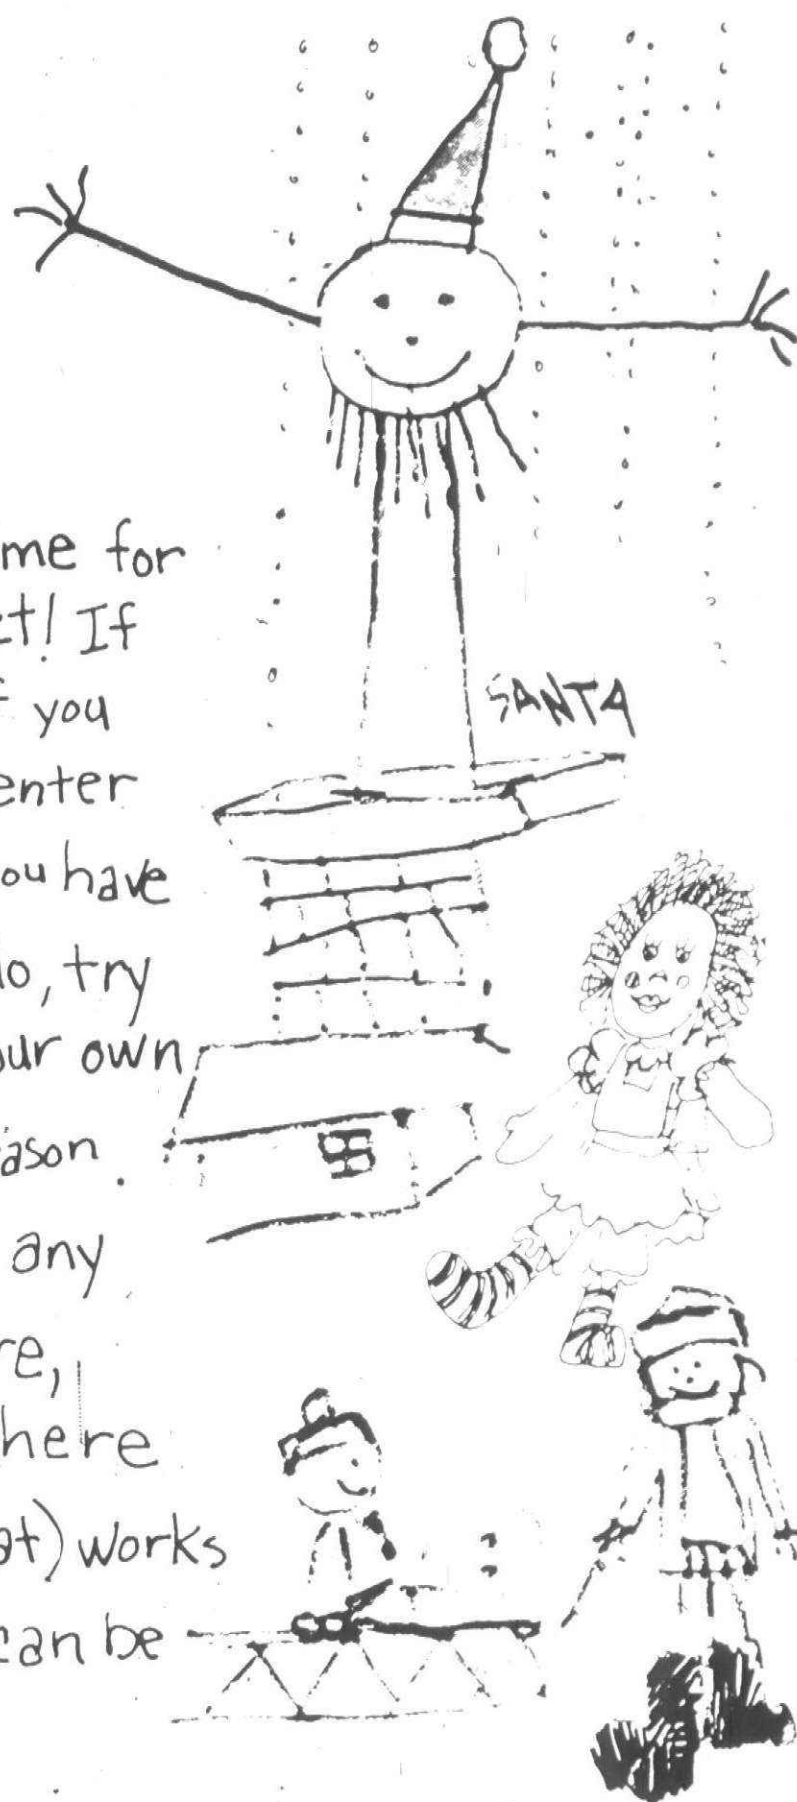 me for
t! If
you
enter
ou have
lo, try
our own
ason.
any
re,
here
at) works
can be
SANTA